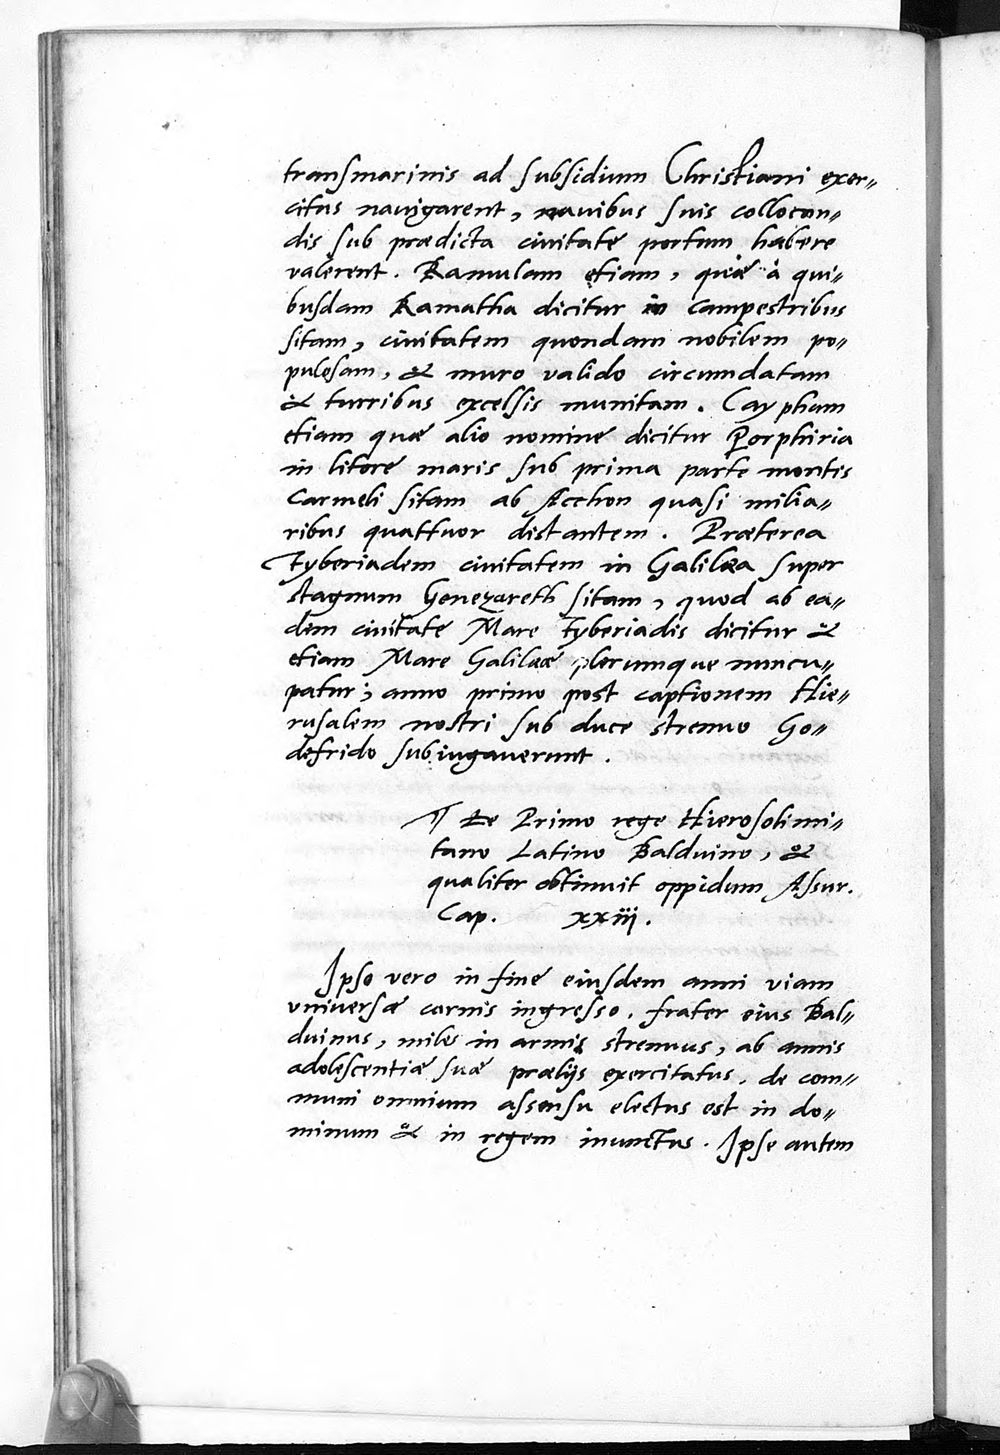 transmarinis ad subsidium Christiani exer„
citus nauigarent, nauibus suis collocan„
dis sub prædicta ciuitate portum habere
valerent. Ramulam etiam, quæ à qui„
busdam Ramatha dicitur in campestribus
sitam, ciuitatem quondam nobilem po„
pulosam, & muro valido circumdatam
& turribus excelsis munitam. Caypham
etiam quæ alio nomine dicitur Porphiria
in litore maris sub prima parte montis
Carmeli sitam ab Acchon quasi milia„
ribus quattuor distantem. Præterea
Tyberiadem ciuitatem in Galilæa super
stagnum Genezareth sitam, quod ab ea„
dem ciuitate Mare Tyberiadis dicitur &
etiam Mare Galilææ plerumque nuncu„
patur; anno primo post captionem Hie„
rusalem nostri sub duce strenuo Go„
defrido subiugauerunt.
¶ De Primo rege Hierosolimi„
tano Latino Balduino, &
qualiter obtinuit oppidum Assur.
Cap. xxiij.
Ipso vero in fine eiusdem anni viam
vniuersæ carnis ingresso, frater eius Bal„
duinus, miles in armis strenuus, ab annis
adolescentiæ suæ prælijs exercitatus, de com„
muni omnium assensu electus est in do„
minum & in regem inunctus. Ipse autem